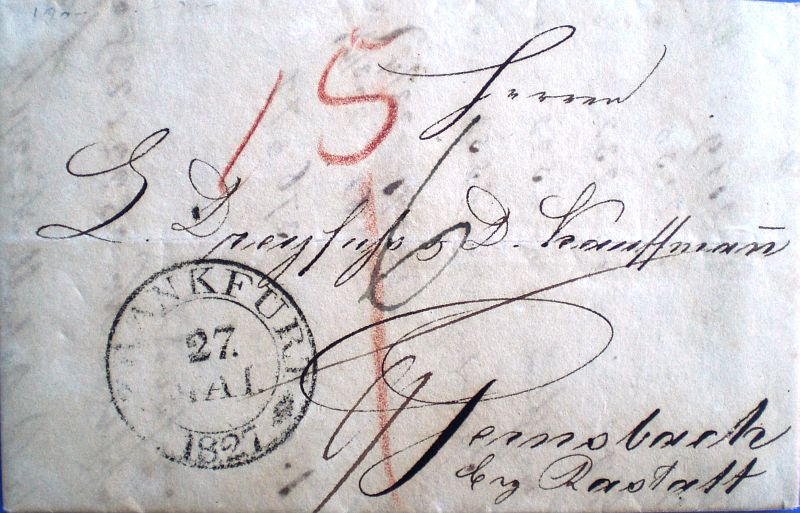 15
Herren
L. Dreyfuss & D. Kauffmañ
6
FRANKFURT
27.
MAI
1827
Gernsbach
bey Rastatt